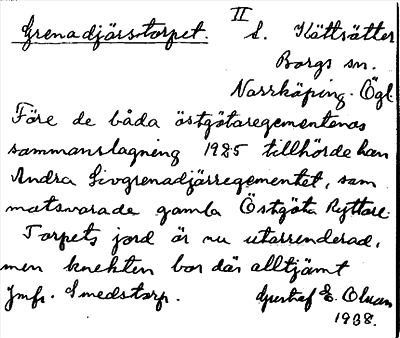 II
Grenadjärstorpet. S. Kättsätter
Borgs sn.
Norrköping. Ögl
Före de båda östgötaregementenas
sammanslagning 1925 tillhörde han
Andra Livgrenadjärregementet, som
motsvarade gamla Östgöta Ryttare.
Torpets jord är nu utarrenderad,
men knekten bor där alltjämt
Jmfr. Smedstorp. Gustaf E. Olsson
1938.